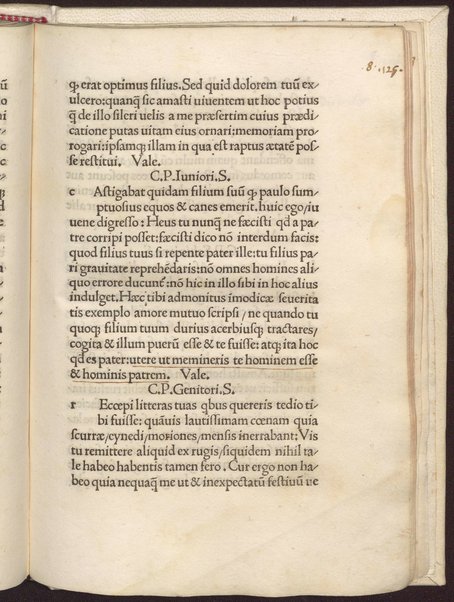 8. 125.
ꝙ erat optimus filius. Sed quid dolorem tuũ ex/
ulcero: quanꝗ̃ sic amasti uiuentem ut hoc potius
ꝗ̃ de illo sileri uelis a me præsertim cuius prædi
catione putas uitam eius ornari: memoriam pro
rogari: ipsamꝗ illam in qua est raptus ætatẽ pos
se restitui. Vale.
C.P. Iuniori. S.
c Astigabat quidam filium suũ ꝙ paulo sum
ptuosius equos & canes emerit. huic ego/iu
uene digresso: Heus tu nunꝗ̃ ne fæcisti qd a pa
tre corripi posset: fæcisti dico nõ interdum facis:
quod filius tuus si repente pater ille: tu filius pa
ri grauitate reprehẽdaris: nõ omnes homines ali
quo errore ducunt̃: nõ hic in illo sibi in hoc alius
indulget. Hæc tibi admonitus ĩmodicæ seuerita
tis exemplo amore mutuo scripsi/ne quando tu
quoꝗ filium tuum durius acerbiusꝗ tractares/
cogita & illum puerũ esse & te fuisse: atꝗ ita hoc
qd es pater: utere ut memineris te hominem esse
& hominis patrem. Vale.
C.P. Genitori. S.
r Eccepi litteras tuas ꝗbus quereris tedio ti/
bi fuisse: quãuis lautissimam cœnam quia
scurræ/cynedi/moriones/mensis inerrabant: Vis
tu remittere aliquid ex rugis/siquidem nihil ta/
le habeo habentis tamen fero. Cur ergo non ha/
beo quia nequaꝗ̃ me ut & inexpectatũ festiuũ ue